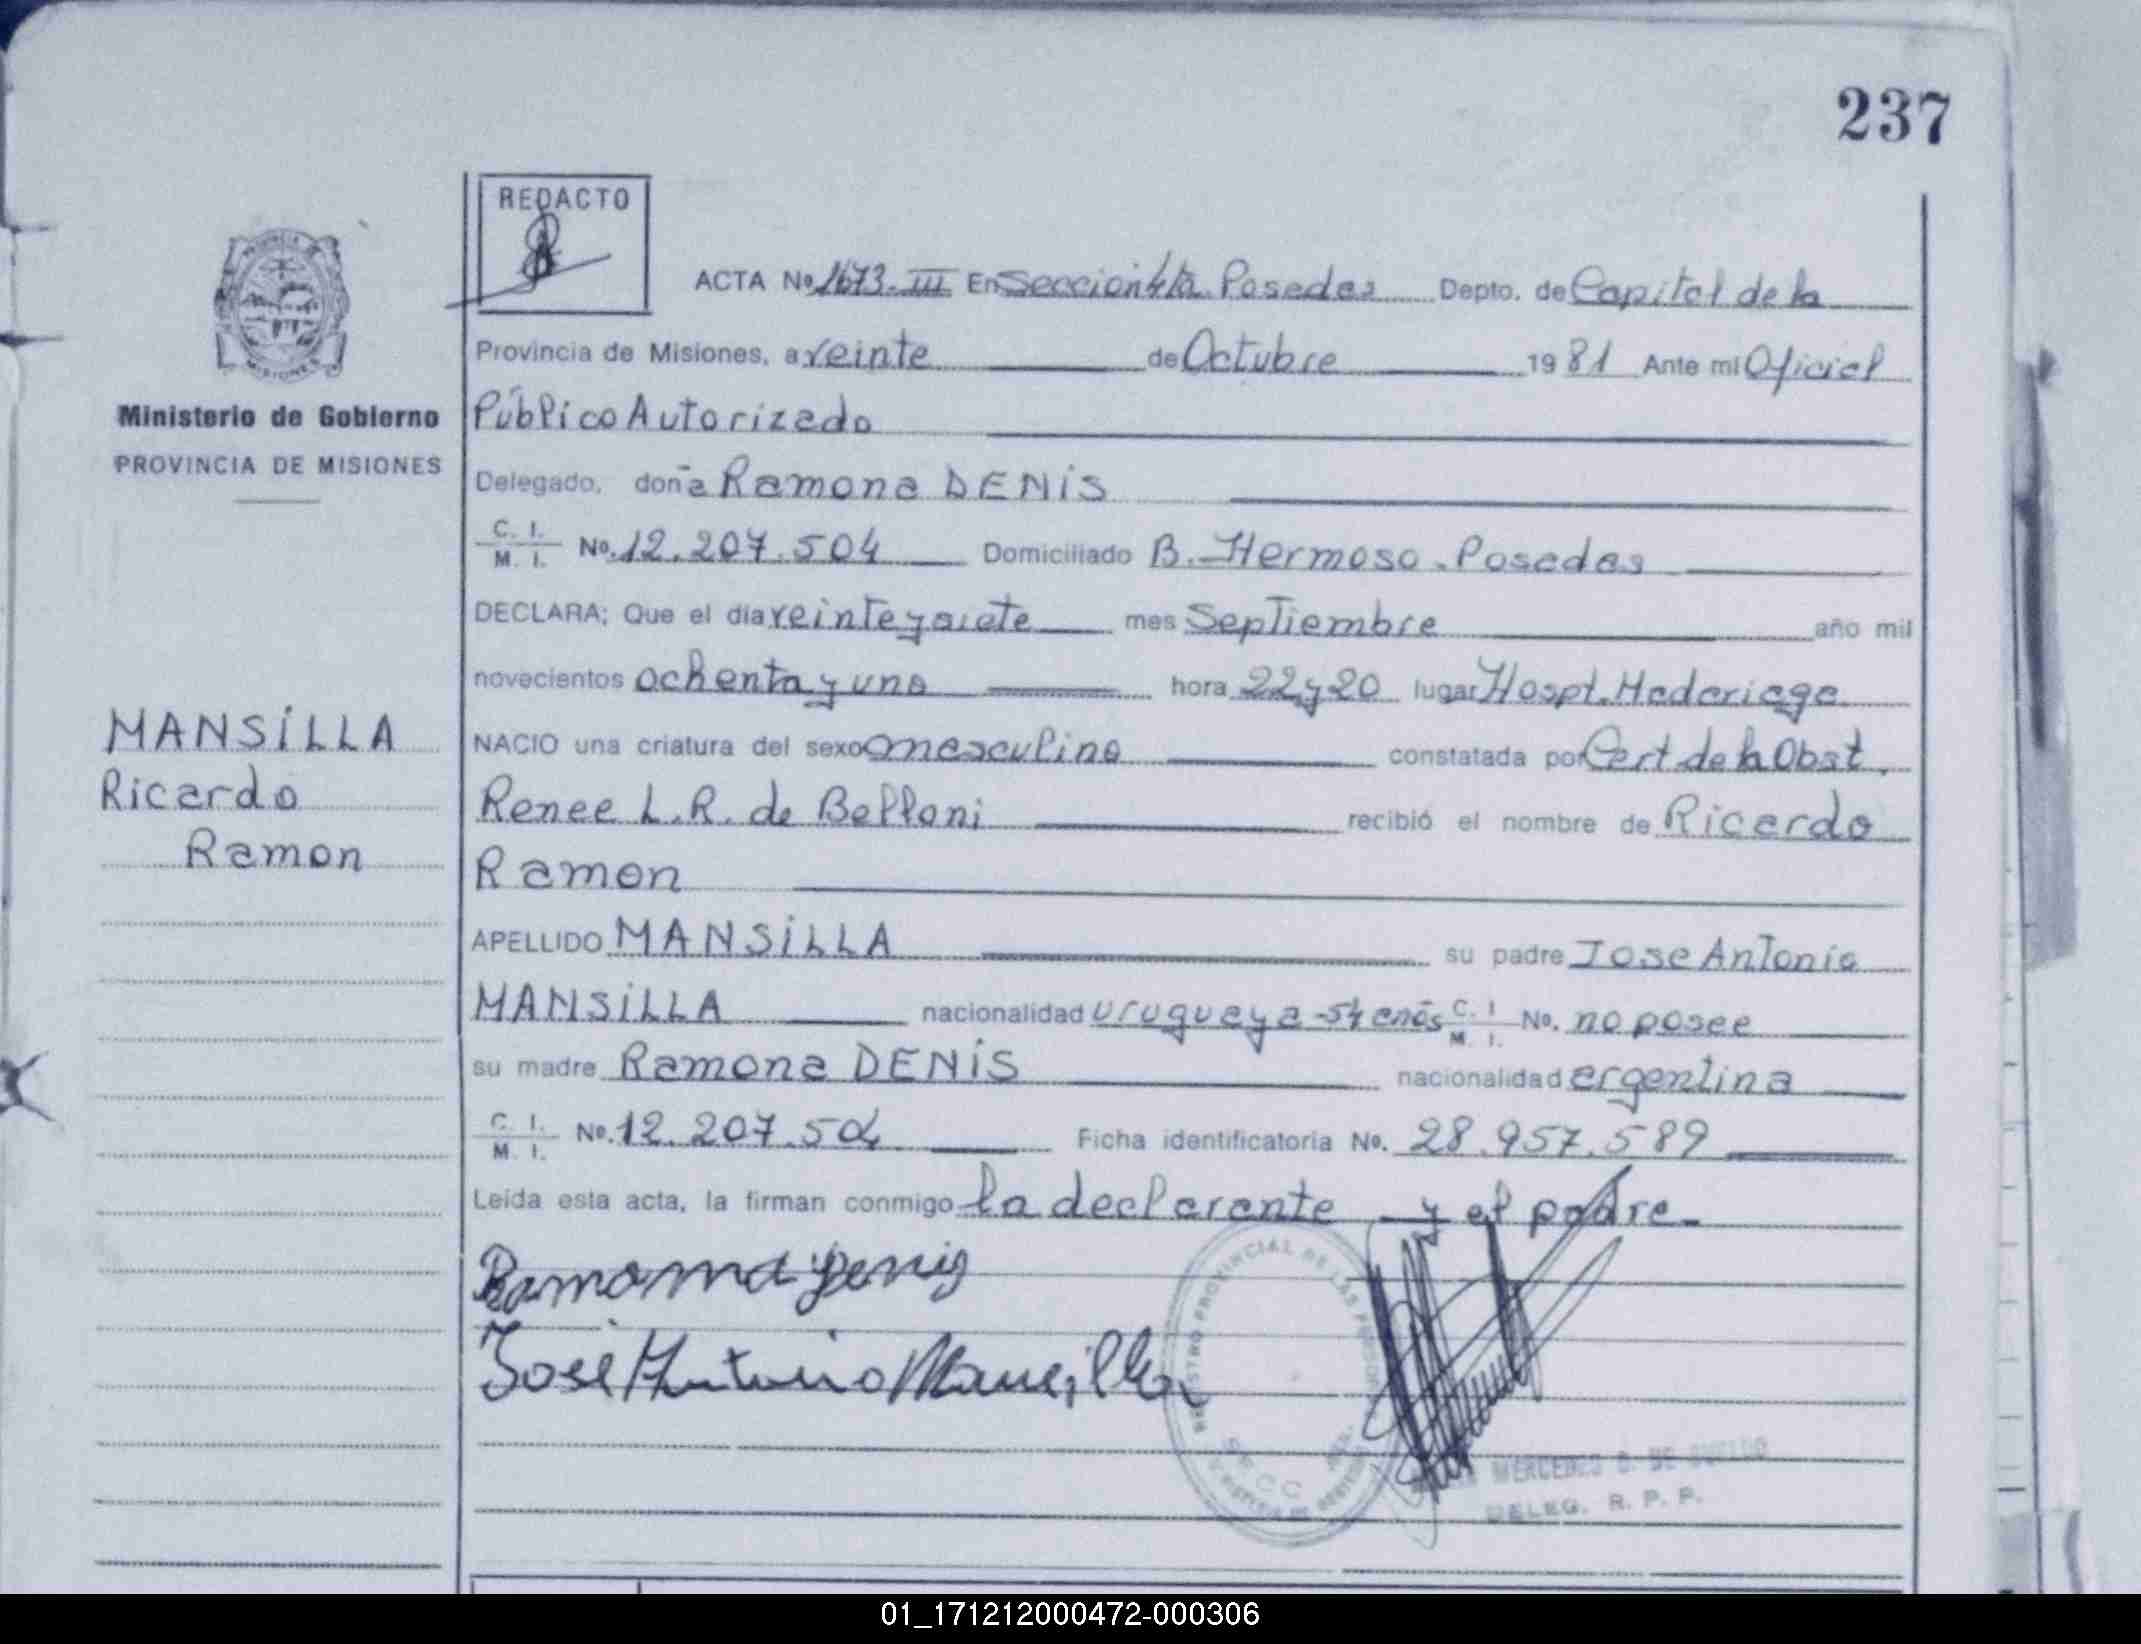 237
REDACTO
ACTA No 1673-III En Sección 4ta Posadas Depto. de Capital de la
Provincia de Misiones, a veinte de Octubre 1981 Ante mi Oficial
Ministerio de Gobierno
PROVINCIA DE MISIONES
Público Autorizado
Delegado, doña Ramona DENiS
C. I. M. I. No. 12.207.504 Domiciliado B. Hermoso. Posadas
DECLARA; Que el día veinteysiete mes Septiembre año mil
novecientos ochenta y uno hora 22y20 lugar Hospt. Madariaga
MANSiLLA
Ricardo
Ramon
NACIO una criatura del sexo masculino constatada por Cert de la Obst.
Renee L.R. de Belloni recibió el nombre de Ricardo
Ramon
APELLIDO MANSiLLA su padre Jose Antonio
MANSiLLA nacionalidad uruguaya-54 años C. I. M. I. No. no posee
su madre Ramona DENiS nacionalidad argentina
C. I. M. I. No. 12.207.504 Ficha identificatoria No. 28.957.589
Leída esta acta, la firman conmigo la declarante y el padre.
Ramona Denis
José Antonio Mansilla
REGISTRO PROVINCIAL DE LAS
MERCEDES
DELEG. R. P. P.
01_171212000472-000306